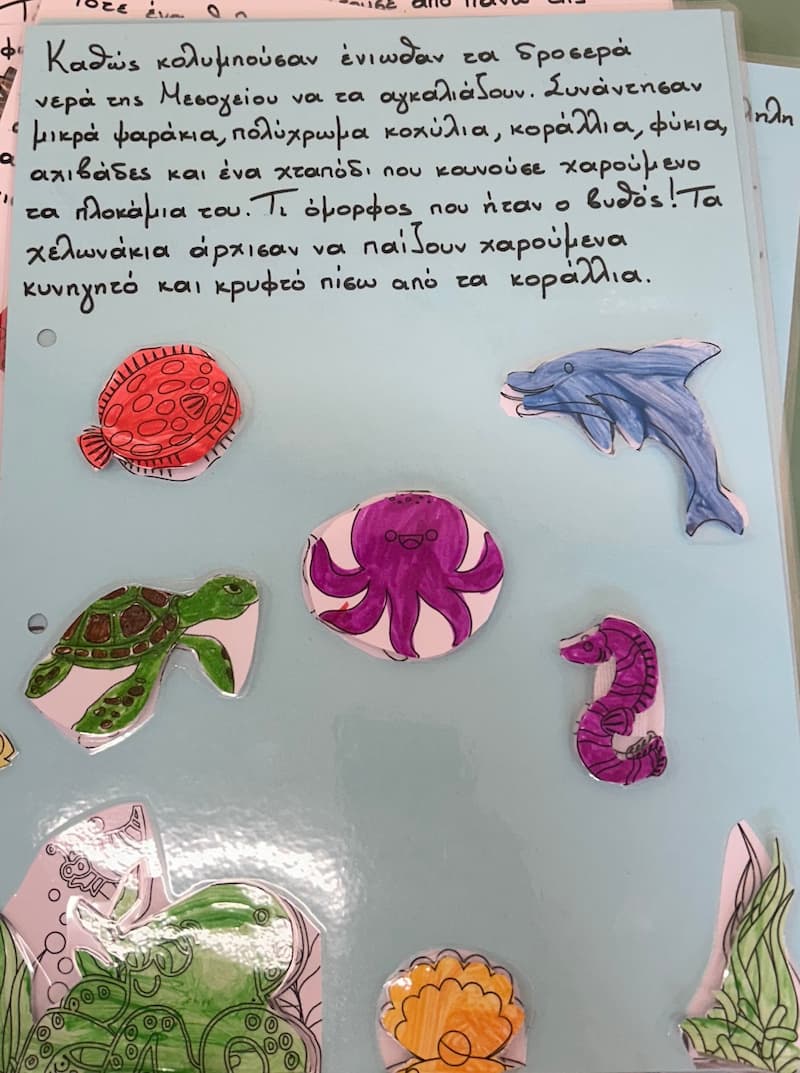 Καθώς κολυμπούσαν ένιωθαν τα δροσερά
νερά της Μεσογείου να τα αγκαλιάζουν. Συνάντησαν
μικρά ψαράκια, πολύχρωμα κοχύλια, κοράλλια, φύκια,
αχιβάδες και ένα χταπόδι που κουνούσε χαρούμενο
τα πλοκάμια του. Τι όμορφος που ήταν ο βυθός! Τα
χελωνάκια άρχισαν να παίζουν χαρούμενα
κυνηγητό και κρυφτό πίσω από τα κοράλλια.